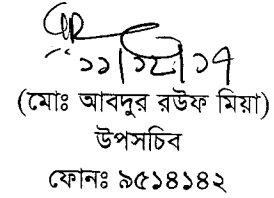 ১১|১২|১৭
(মোঃ আবদুর রউফ মিয়া)
উপসচিব
ফোনঃ ৯৫১৪১৪২